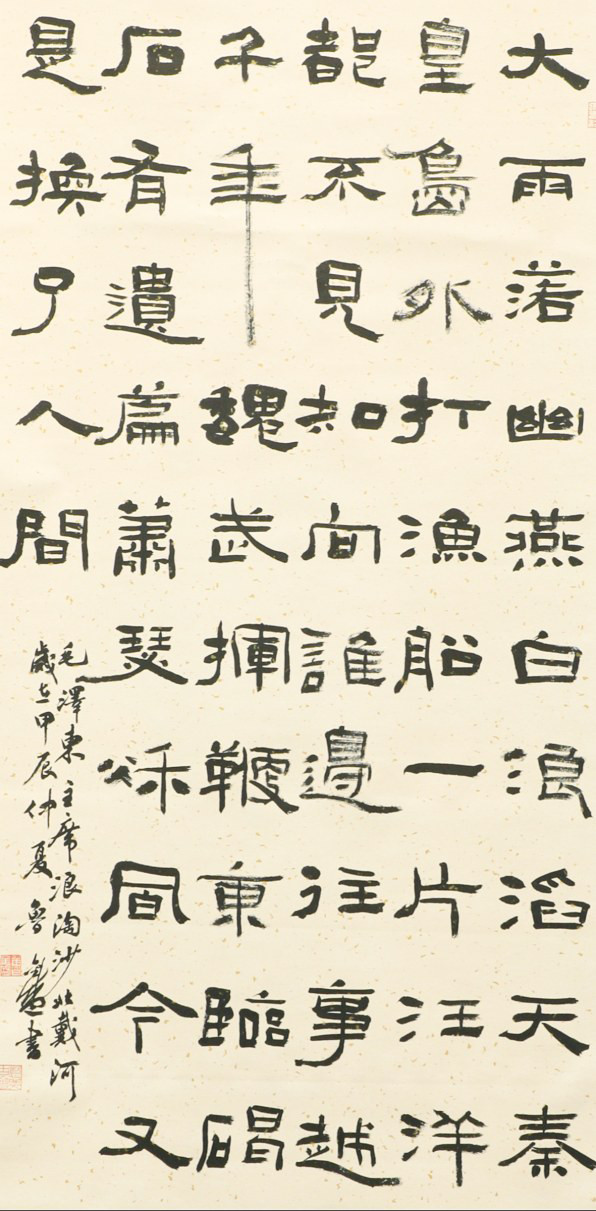 大雨落幽燕白浪滔天秦
皇島外打漁船一片汪洋
都不見知向誰邊往事越
千年魏武揮鞭東臨碣
石有遺篇蕭瑟秋風今又
是換了人間
毛澤東主席浪淘沙北戴河
歲在甲辰仲夏魯書